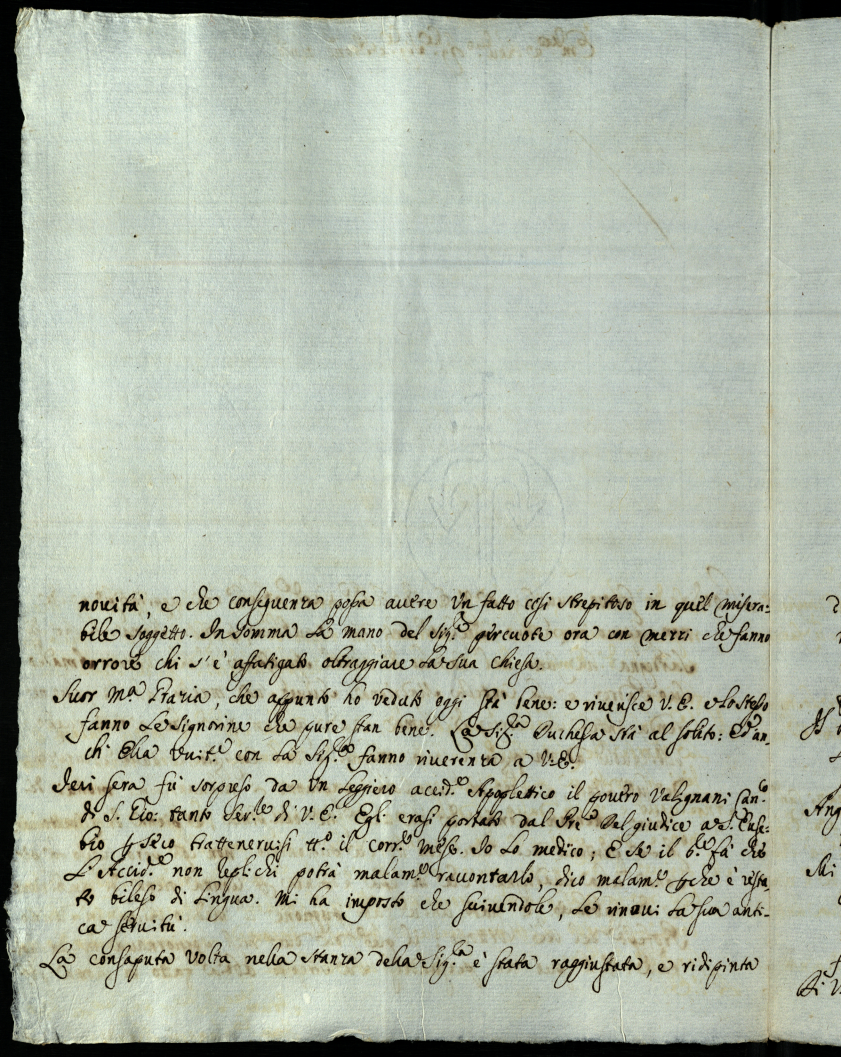 novità, e che conseguenza possa avere un fatto così strepitoso in quel misera=
bile soggetto. In somma La mano del Sig.re percuote ora con mezzi che fanno
orrore chi s'è affatigato oltraggiare La sua Chiesa.
Suor M.a Grazia, che appunto ho veduto oggi stà bene: e riverisce V. E. e Lo stesso
fanno Le Signorine che pure stan bene. La Sig.ra Duchessa stà al solito: Ed an=
ch'Ella unit.e con La Sig.ra fanno riverenza a V. E.
Jeri sera fù sorpreso da un Leggiero accid.e Apopletico il povero Valignani Can.co
di S. Gio: tanto Ser.le di V. E. Egli erasi portato dal Pre Del giudice a S. Euse=
bio p seco trattenervisi tt.o il corr.e mese. Io Lo medico; E se il b.e fà che
L'Accid.e non replichi potrà malam.e raccontarlo, dico malam.e pche è resta=
to bileso di Lingua. Mi ha imposto che scrivendole, Le rinovi La sua anti=
ca servitù.
La consaputa volta nella stanza della Sig.ra è stata raggiustata, e ridipinta